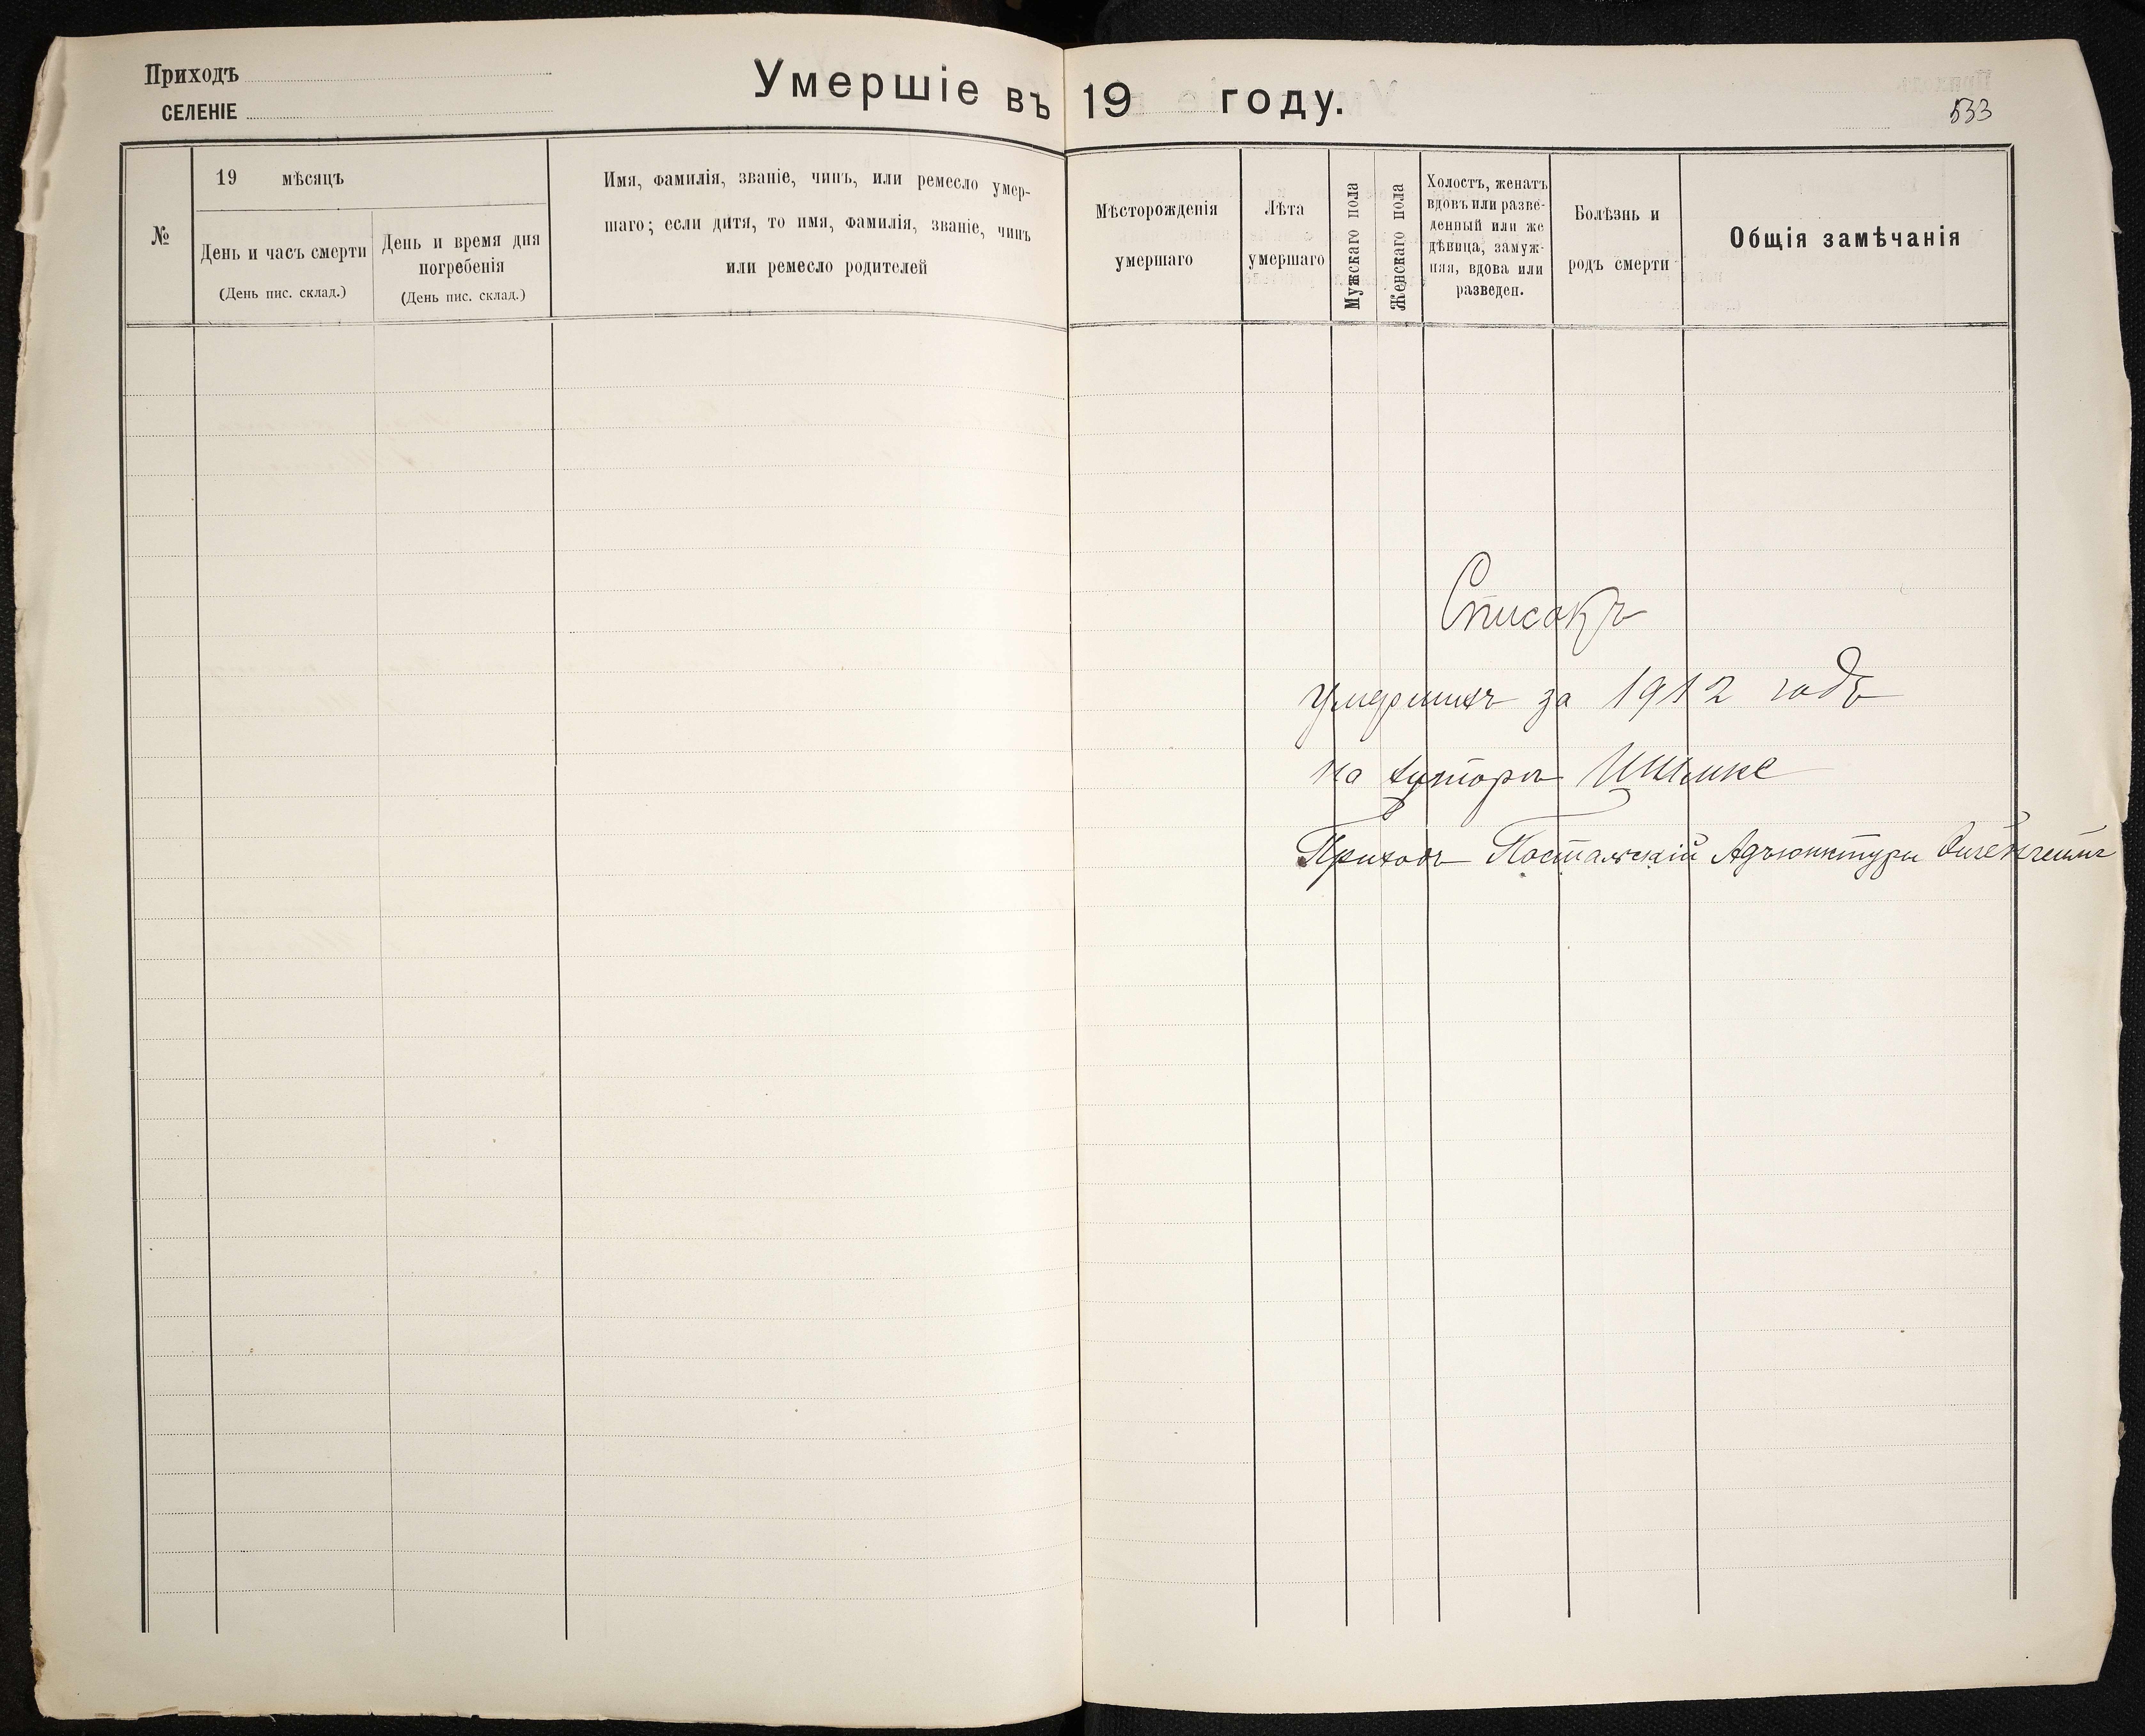 Приходъ
СЕЛЕНІЕ
Умершіе въ 19 году.
533
№
19 мѣсяцъ
День и часъ смерти
(День пис. склад.)
День и время дня
погребенія
(День пис. склад.)
Имя, фамилія, званіе, чинъ, или ремесло умер-
шаго; если дитя, то имя, фамилія, званіе, чинъ
или ремесло родителей
Мѣсторожденія
умершаго
Лѣта
умершаго
Мужскаго пола
Женскаго пола
Холостъ, женатъ
вдовъ или разве-
денный или же
дѣвица, замуж-
няя, вдова или
разведен.
Болѣзнь и
родъ смерти
Общія замѣчанія
Списокъ
умершихъ за 1912 годъ
на хуторѣ
Приходъ Постальскій Адъюнктуры